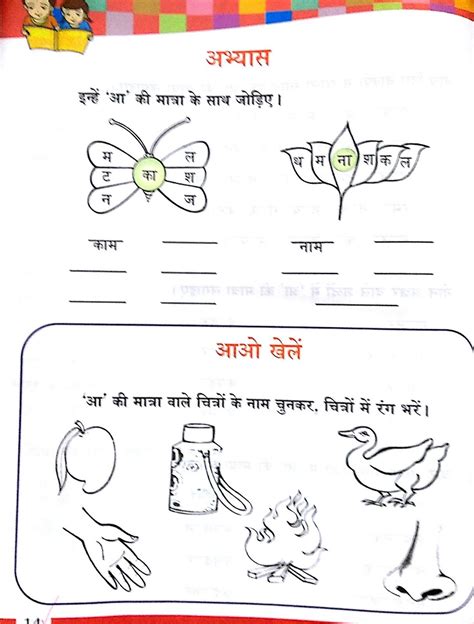 अभ्यास
इन्हें 'आ' की मात्रा के साथ जोड़िए।
म ल
ट का श
न ज
थ म ना श क ल
काम
नाम
आओ खेलें
'आ' की मात्रा वाले चित्रों के नाम चुनकर, चित्रों में रंग भरें।
14